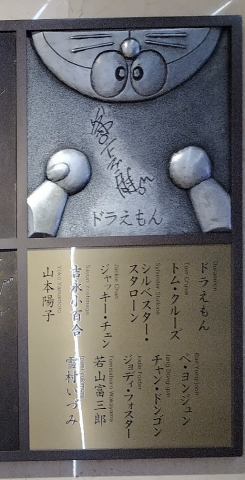 ドラえもん
Doraemon
ドラえもん
Tom Cruise
トム・クルーズ
Sylvester Stallone
シルベスター・
スタローン
Jackie Chan
ジャッキー・チェン
Sayuri Yoshinaga
吉永小百合
Yoko Yamamoto
山本陽子
Bae Yong-joon
ペ・ヨンジュン
Jang Dong-gun
チャン・ドンゴン
Jodie Foster
ジョディ・フォスター
Tomisaburo Wakayama
若山富三郎
雪村いづみ